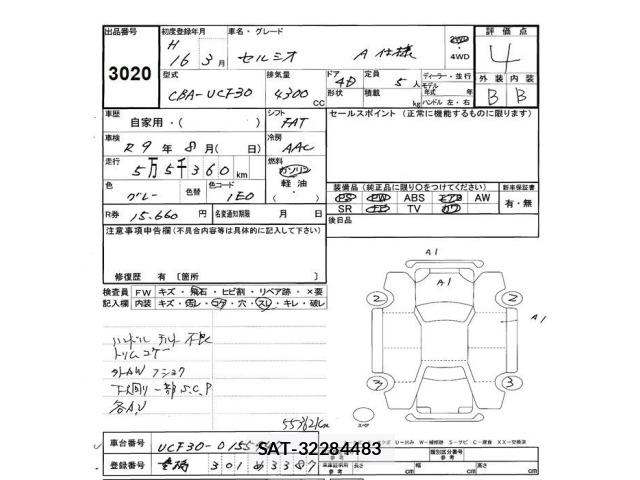 出品番号 3020
初度登録年月 H 16年 3月
車名・グレード セルシオ A 仕様
2WD・4WD
評価点 4
外装 内装
B B
型式 CBA-UCF30
排気量 4300 cc
ドア 4D
形状
定員 5人
積載 kg
ディーラー・並行
モデル年式 年式
ハンドル 左・右
車歴 自家用・( )
シフト FAT
セールスポイント (正常に機能するものに限ります)
車検 R9年 8月( 日)
冷房 AAC
走行 5万5千360km
燃料 ガソリン
軽油・
( )
色 グレー 色替
色コード 1E0
装備品(純正品に限り○をつけてください)
PS PW ABS エアB AW
SR ナビ TV カワ
新車保証書
有・無
R券 15,660円
名変期限 月 日
後日品
注意事項申告欄(不具合内容等は具体的に記入して下さい)
修復歴 有〔箇所 〕
検査員記入欄
FW キズ・飛石・ヒビ割・リペア跡・×要
内装 キズ・汚レ・コゲ・穴・スレ・キレ・破レ
ハンドル チルト 不良
トリムコゲ
下回り一部 S.C.P
各AU
55362km
A1
A1
A1
2 2
3 3
スペア
車台番号 UCF30-0155
SAT-32284483
登録番号 301 め 3387
車庫証明用 長さ cm 幅 cm 高さ cm
類別区分番号